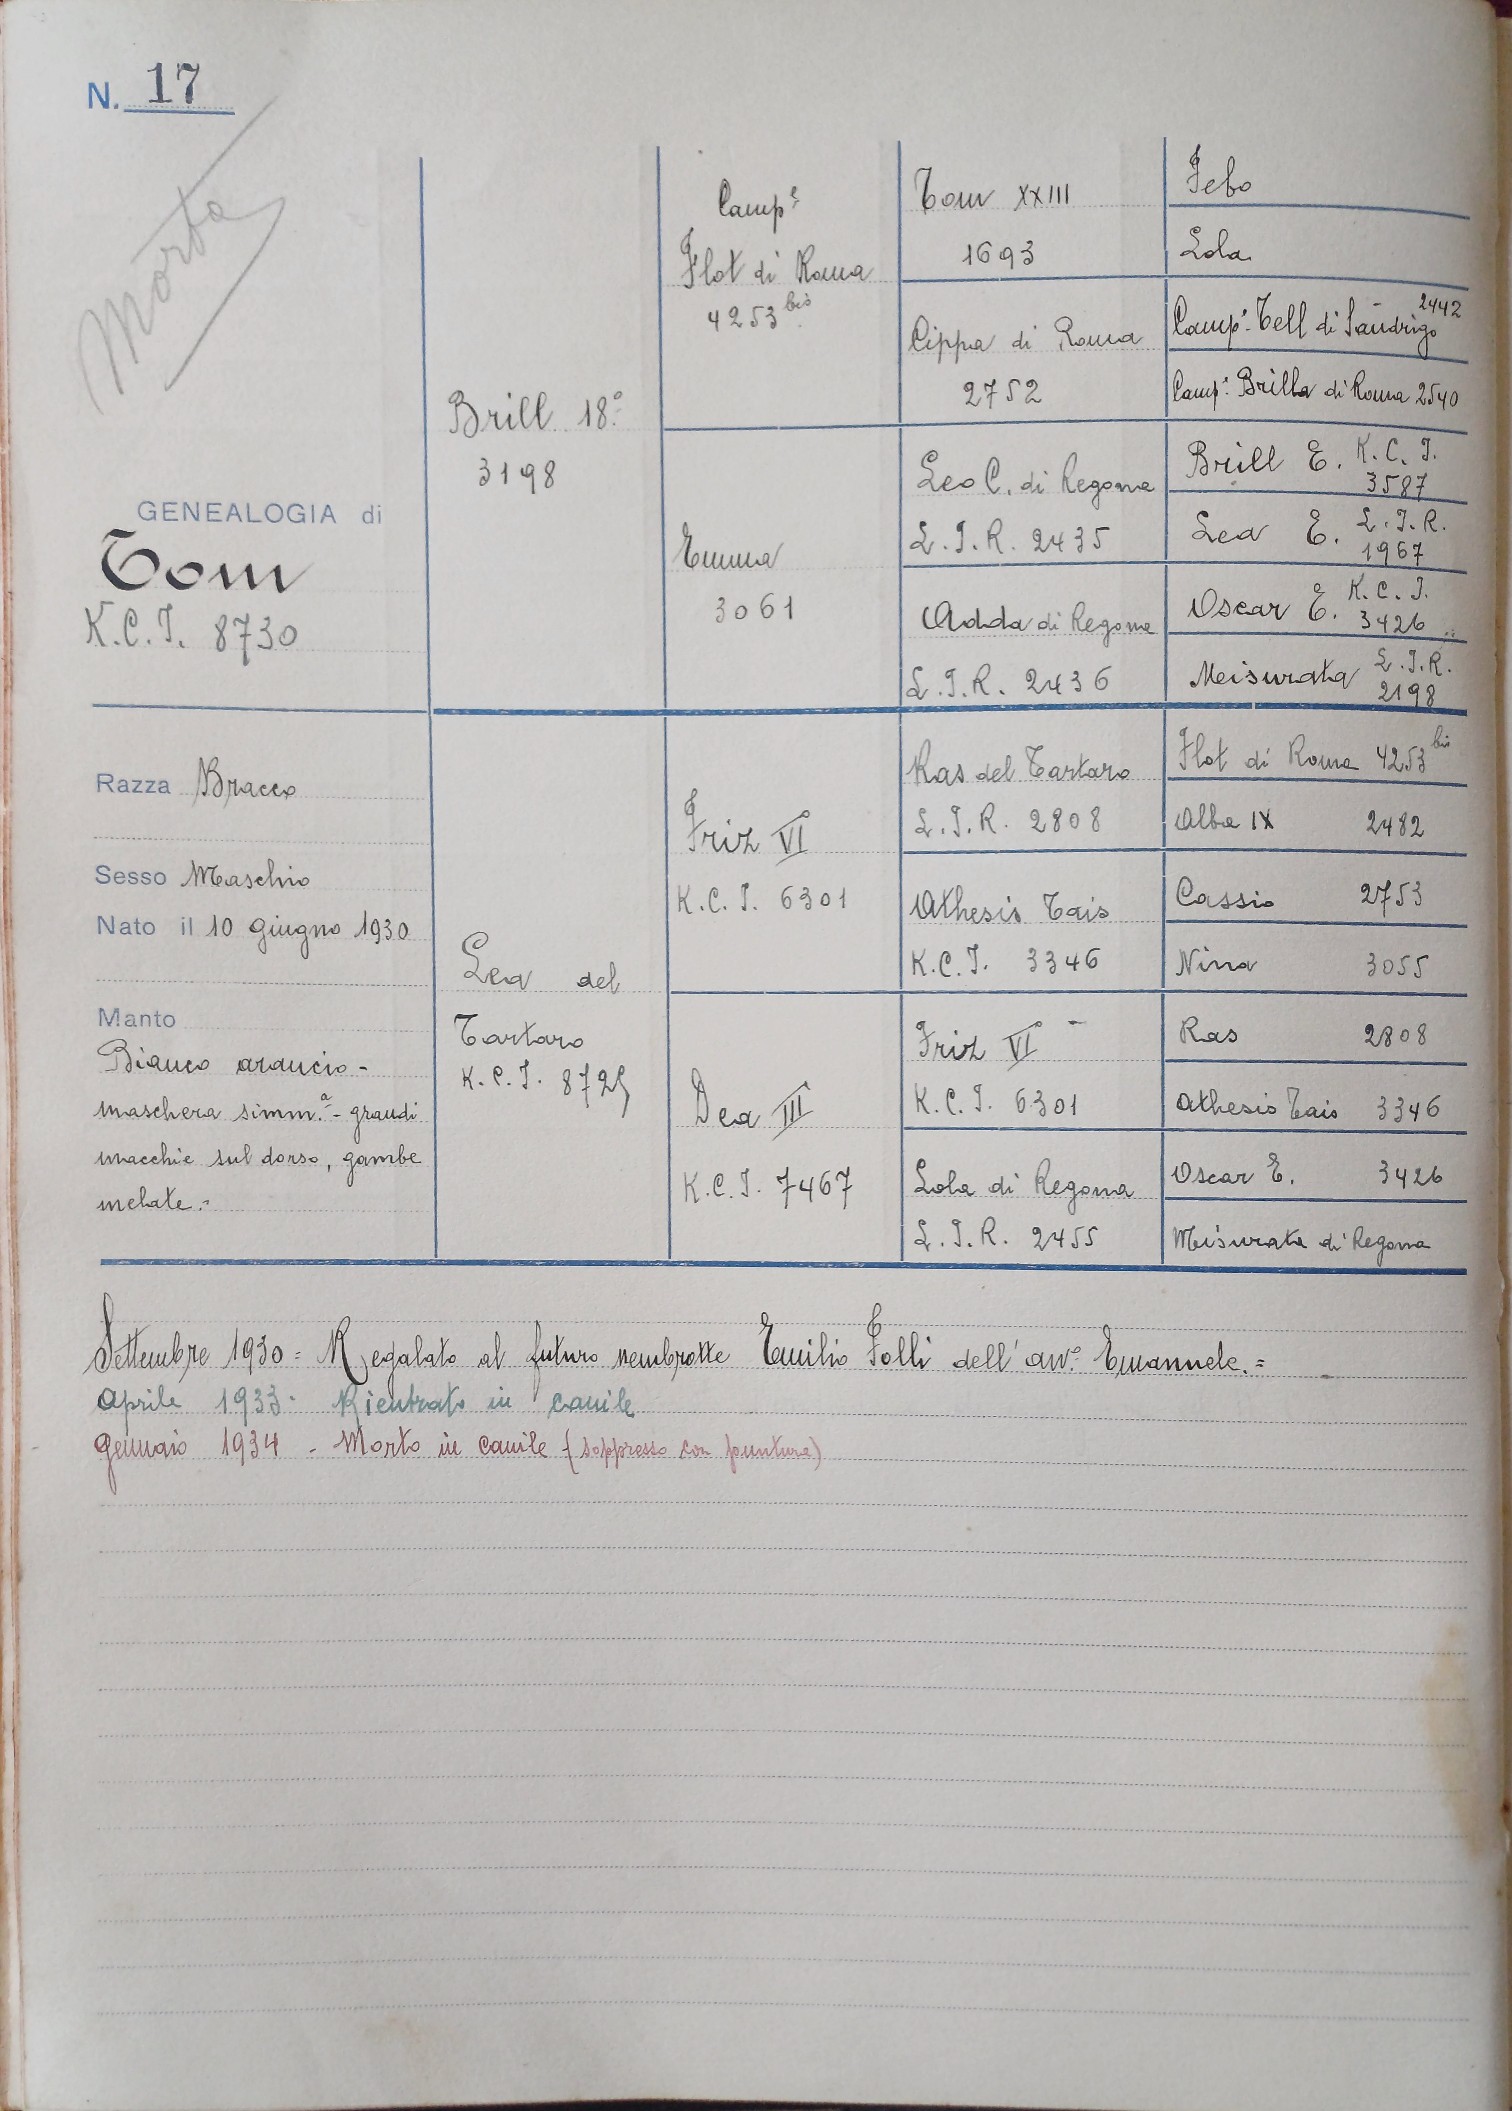 N. 17
Morto
GENEALOGIA di
Tom
K.C.I. 8730
Razza Bracco
Sesso Maschio
Nato il 10 giugno 1930
Manto
Bianco arancio-
maschera simm.ª - grandi
macchie sul dorso, gambe
melate.=
Brill 18°
3198
Lea del
Tartaro
K.C.I. 8725
Camp.e
Flot di Roma
4253 bis
Emma
3061
Friz VI
K.C.I. 6301
Dea III
K.C.I. 7467
Tom XXIII
1693
Cippa di Roma
2752
Leo C. di Regona
L.I.R. 2435
Adda di Regona
L.I.R. 2436
Ras del Tartaro
L.I.R. 2808
Athesis Tais
K.C.I. 3346
Friz VI
K.C.I. 6301
Lola di Regona
L.I.R. 2455
Febo
Lola
Camp.e Tell di Sandrigo 2442
Camp.e Brilla di Roma 2540
Brill E. K.C.I. 3587
Lea E. L.I.R. 1967
Oscar E. K.C.I. 3426
Meisurata L.I.R. 2198
Flot di Roma 4253 bis
Alba IX 2482
Cassio 2753
Nina 3055
Ras 2808
Athesis Tais 3346
Oscar E. 3426
Misurata di Regona
Settembre 1930 = Regalato al futuro nembrotte Emilio Folli dell'avv.o Emanuele.=
Aprile 1933 - Rientrato in canile
Gennaio 1934 - Morto in canile (soppresso con puntura)